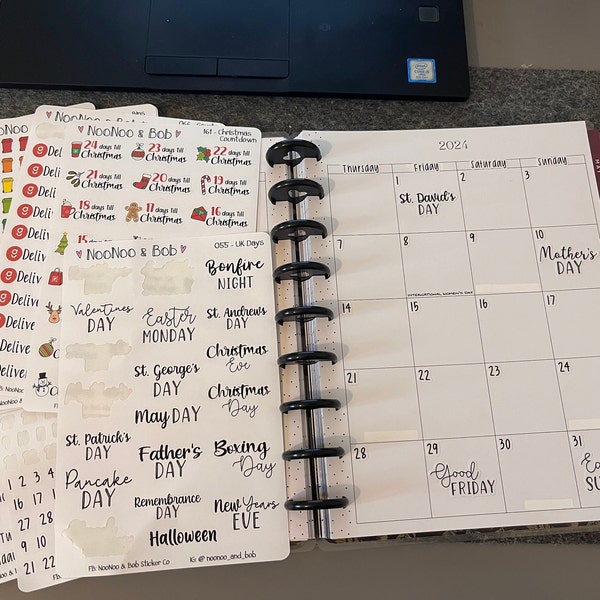 intel
NooNoo & Bob
161 - Christmas
Countdown
24 days till
Christmas
23 days till
Christmas
22 days till
Christmas
21 days till
Christmas
20 days till
Christmas
19 days till
Christmas
18 days till
Christmas
17 days till
Christmas
16 days till
Christmas
Delive
Deliver
Delive
Deliver
Delive
Deliver
NooNoo & Bob
055 - UK Days
Bonfire
NIGHT
Valentines
DAY
Easter
MONDAY
St. Andrews
DAY
St. George's
DAY
Christmas
Eve
May DAY
Christmas
Day
St. Patrick's
DAY
Father's
DAY
Boxing
Day
Pancake
DAY
Remembrance
DAY
New Years
EVE
Halloween
FB: NooNoo & Bob Sticker Co
IG: @noonoo_and_bob
2024
Thursday
Friday
Saturday
Sunday
1
St. David's
DAY
2
3
7
8
INTERNATIONAL WOMEN'S DAY
9
10
Mother's
DAY
14
15
16
17
21
22
23
24
28
29
Good
FRIDAY
30
31